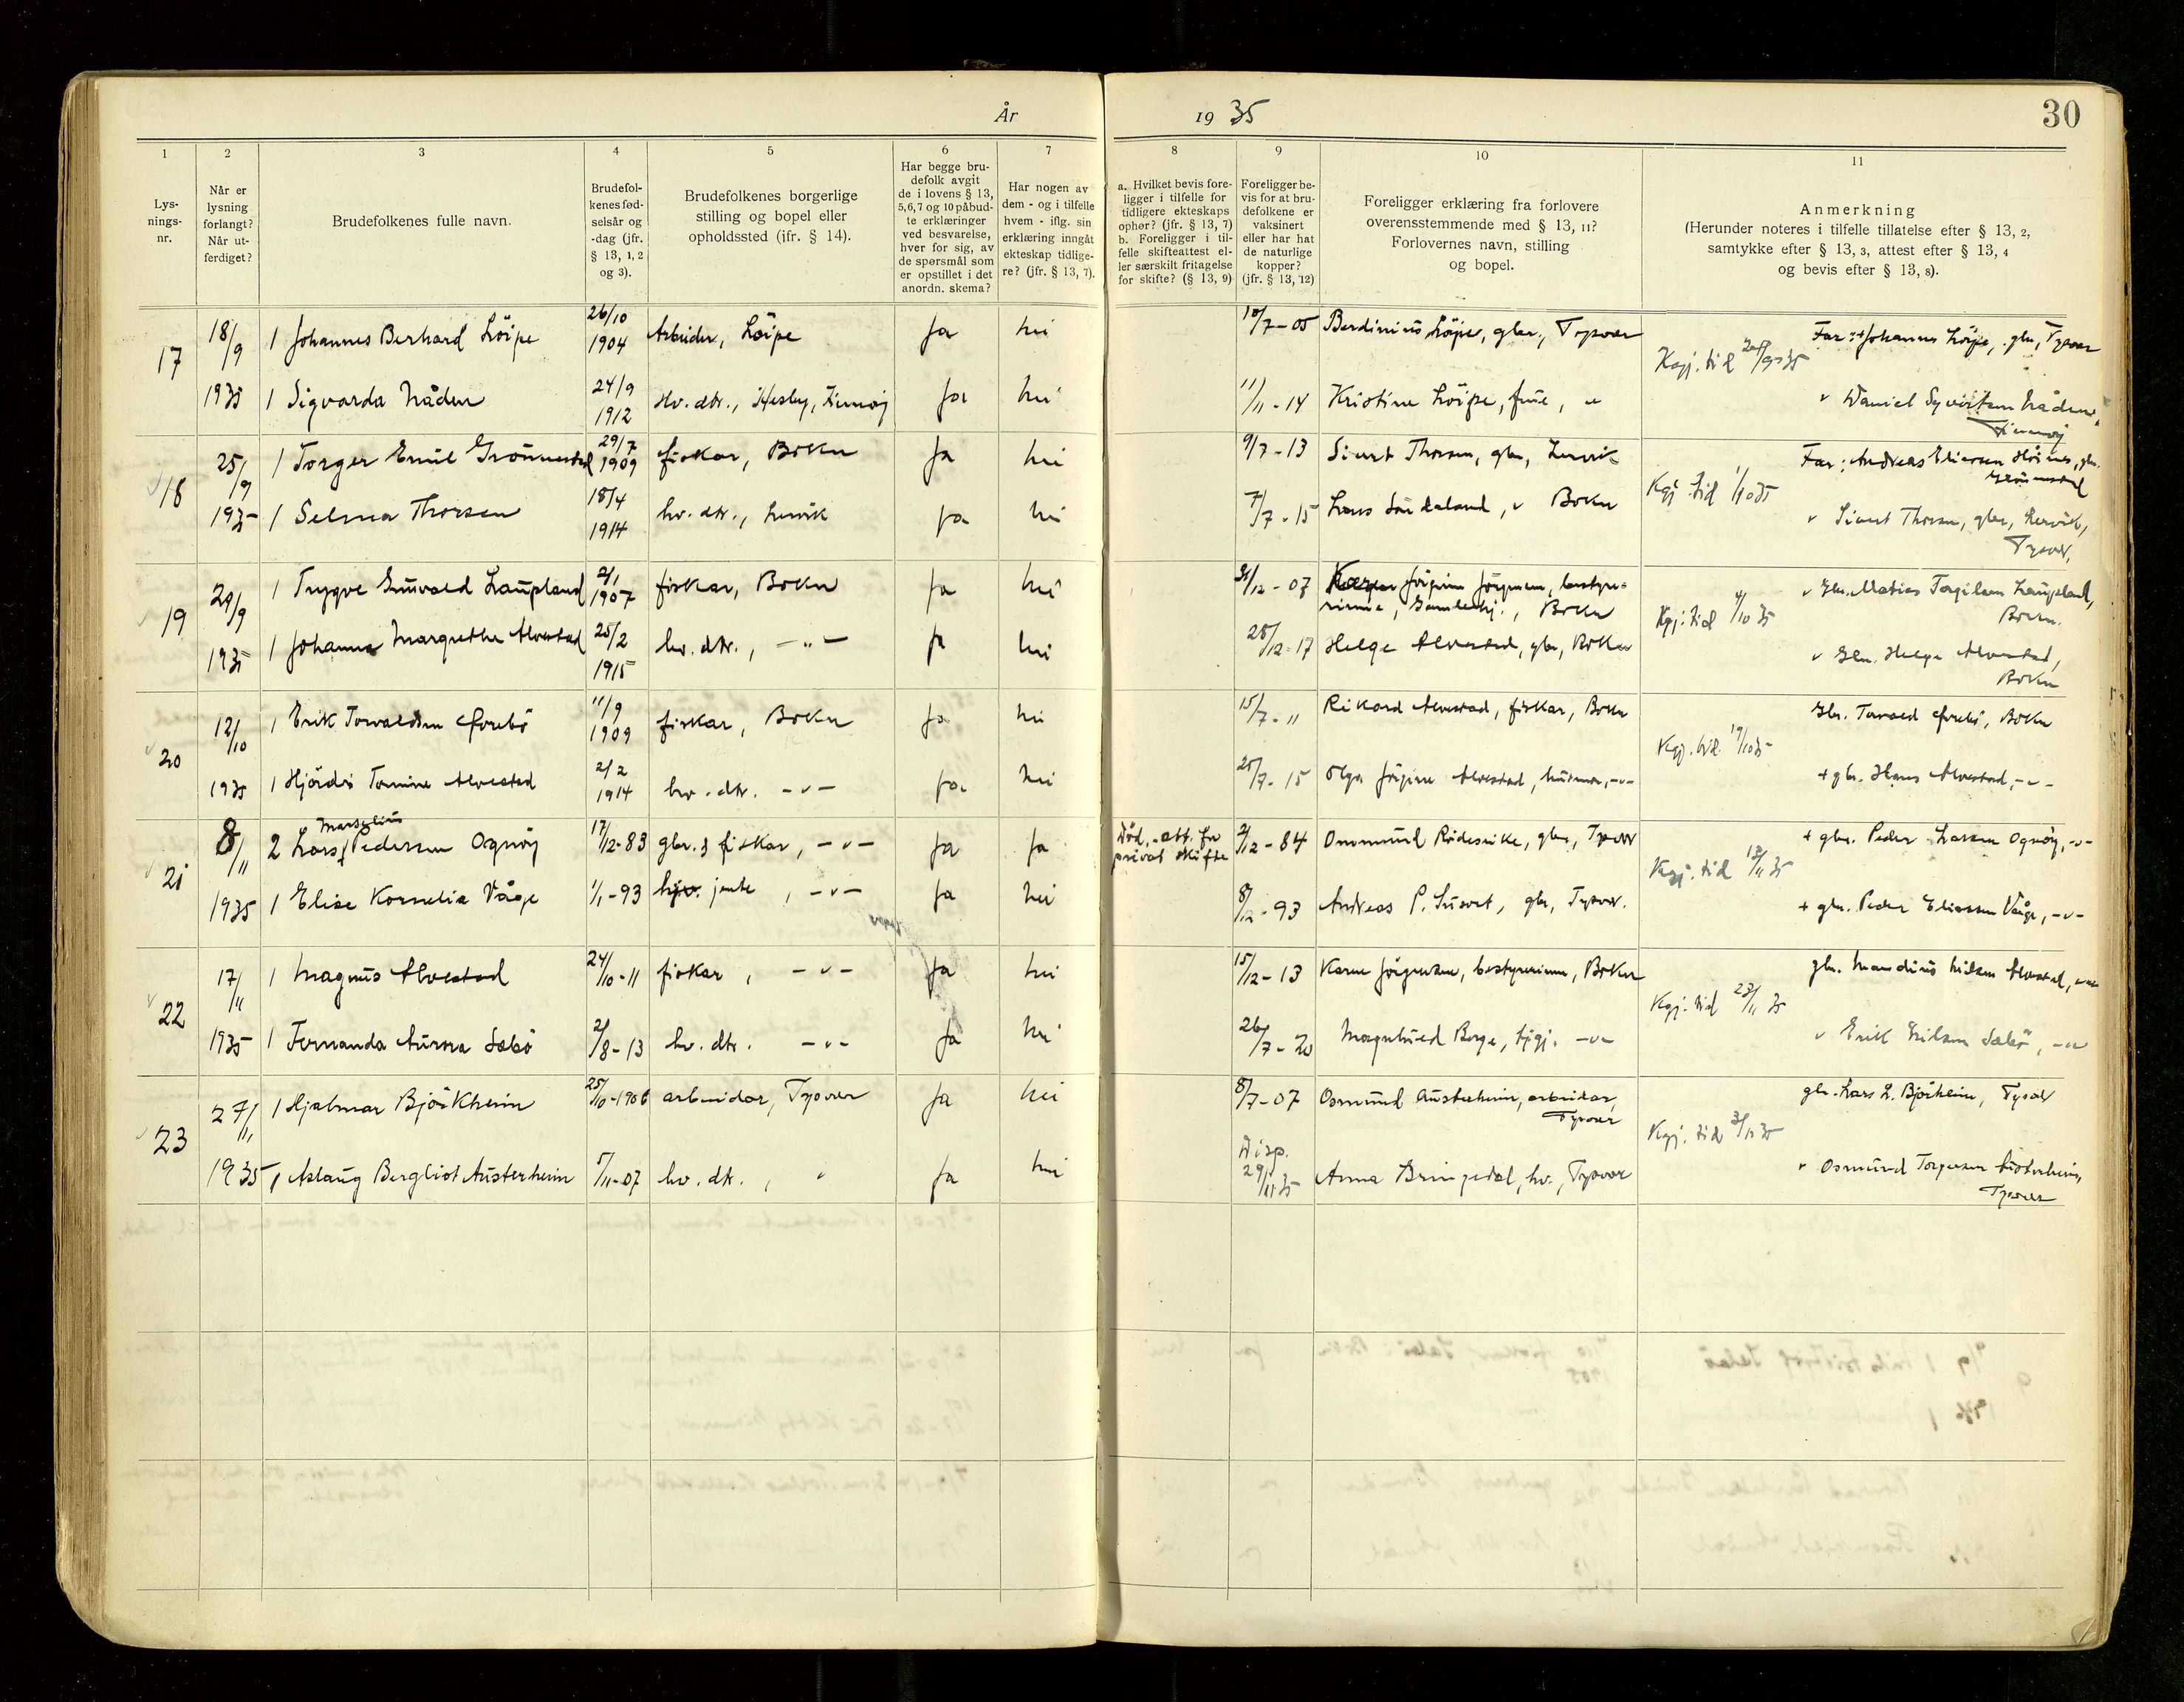 År 1935
30
1 2 3 4 5 6 7 8 9 10 11
Lys-
nings-
nr.
Når er
lysning
forlangt?
Når ut-
ferdiget?
Brudefolkenes fulle navn.
Brudefol-
kenes fød-
selsår og
-dag (jfr.
§ 13, 1, 2
og 3).
Brudefolkenes borgerlige
stilling og bopel eller
opholdssted (jfr. § 14).
Har begge bru-
defolk avgit
de i lovens § 13,
5,6,7 og 10 påbud-
te erklæringer
ved besvarelse,
hver for sig, av
de spørsmål som
er opstillet i det
anordn. skema?
Har nogen av
dem - og i tilfelle
hvem - iflg. sin
erklæring inngåt
ekteskap tidlige-
re? (jfr. § 13, 7).
a. Hvilket bevis fore-
ligger i tilfelle for
tidligere ekteskaps
ophør? (jfr. § 13, 7)
b. Foreligger i til-
felle skifteattest el-
ler særskilt fritagelse
for skifte? (§ 13, 9)
Foreligger be-
vis for at bru-
defolkene er
vaksinert
eller har hat
de naturlige
kopper?
(jfr. § 13, 12)
Foreligger erklæring fra forlovere
overensstemmende med § 13, 11?
Forlovernes navn, stilling
og bopel.
Anmerkning
(Herunder noteres i tilfelle tillatelse efter § 13, 2,
samtykke efter § 13, 3, attest efter § 13, 4
og bevis efter § 13, 8).
17 18/9 1 Johannes Berhard Löipe 26/10 1904 Arbeider, Löipe Ja nei 10/7-05 Berdinius Löipe, gbr., Tysvær Far: + Johannes Löipe, gbr, Tysvær
1935 1 Sigvarda Nåden 24/9 1912 Hv. dtr., Hesby, Finnøy Ja nei 11/11-14 Kristine Löipe, frue, " Daniel Nådene
Finnøy
18 25/9 1 Torger Emil Grönnestad 29/7 1909 fiskar, Bokn Ja nei 9/7-13 Sivert Thorsen, gbr, Lervik Kgj. tid 1/10 35 Far: Andreas Eliassen gbr.
Grönnestad
1935 1 Selma Thorsen 18/4 1914 hv. dtr., Lervik Ja nei 7/7-15 Lars Sandeland, " Bokn " Sivert Thorsen, gbr, Lervik,
Tysvær,
19 29/9 1 Trygve Grunvald Laupland 2/1 1907 fiskar, Bokn Ja nei 31/12-07 Jörgine Jörgensen, bestyre-
rinne, Gamlehj., Bokn Kgj. tid 4/10 35 " Gbr. Matias Torgilsen Laupland,
Bokn.
1935 1 Johanna Margrethe Alvestad 25/2 1915 hv. dtr., -"- Ja nei 28/12-17 Helge Alvestad, gbr, Bokn " Gbr. Helge Alvestad,
Bokn
20 12/10 1 Erik Torvaldsen Örebö 11/9 1909 fiskar, Bokn Ja nei 15/7-11 Rikard Alvestad, fiskar, Bokn Kgj. tid 19/10 35 Gbr. Torvald Örebö, Bokn
1935 1 Hjördis Tomine Alvestad 2/2 1914 hv. dtr. -"- Ja nei 25/7-15 Olga Jörgine Alvestad, husmor, -"- + gbr. Hans Alvestad, -"-
21 8/11 2 Lars Marselius Pedersen Ognöy 17/12-83 gbr. & fiskar, -"- Ja Ja Död.-att. fra
privat skifte 2/12-84 Ommund Rödesike, gbr, Tysvær Kgj. tid 13/11 35 + gbr. Peder Larsen Ognöy, -"-
1935 1 Elise Kornelia Våge 1/1-93 jente, -"- Ja nei 8/12-93 Andreas P. Susort, gbr, Tysvær. + gbr. Peder Eliassen Våge, -"-
22 17/11 1 Magnus Alvestad 24/10-11 fiskar, -"- Ja nei 15/12-13 Karen Jörgensen, bestyrerinne, Bokn Kgj. tid 23/11 35 gbr. Mandius Nilsen Alvestad, -"-
1935 1 Fernanda Aurora Sæbö 2/8-13 hv. dtr. -"- Ja nei 26/7-20 Magnhild Borge, -"- " Erik Eriksen Sæbö, -"-
23 27/11 1 Hjalmar Björkheim 25/10-1906 arbeidar, Tysvær Ja nei 8/7-07 Osmund Austerheim, arbeidar,
Tysvær Kgj. tid 3/12 35 gbr. Lars L. Björheim, Tysvær
1935 1 Aslaug Bergliot Austerheim 5/11-07 hv. dtr., " Ja nei Disp.
29/11 35 Anna Bringedal, hv., Tysvær " Osmund Torgersen Austerheim,
Tysvær